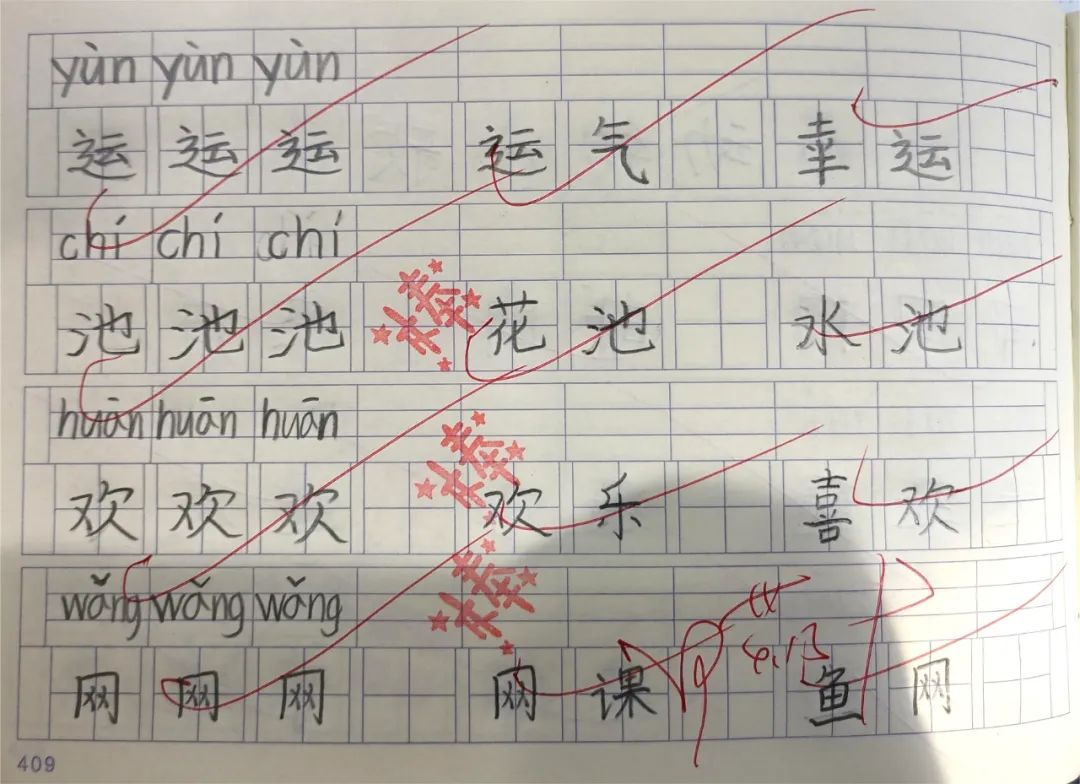 yùn yùn yùn
运 运 运 运 气 幸 运
chí chí chí
池 池 池 花 池 水 池
棒棒
huān huān huān
欢 欢 欢 欢 乐 喜 欢
棒棒
wǎng wǎng wǎng
棒棒
网 网 网 网 课 鱼 网
409